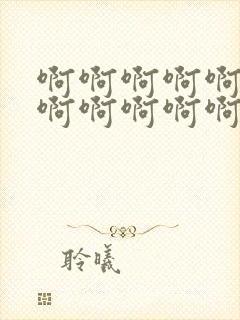 啊啊啊啊啊
啊啊啊啊啊
聆曦